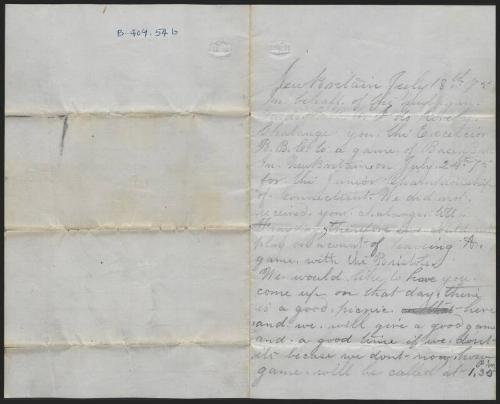 B-409.54b
New Britain July 18th 75
In behalf of the
I do hereby
Chalange you the Excelsior
B.B.C to a game of Base Ball
In New Britain on July 24th 75
for the Junior Championship
of Connecticut. We did not
receive your chalange till
therefore we could not
play on account of haveing A.
game with the Bristols.
We would like to have you
come up on that day, there
is a good picnic here
and we will give a good game
and a good time if we dont
becase we dont now how
game will be called at 1,30
P.M